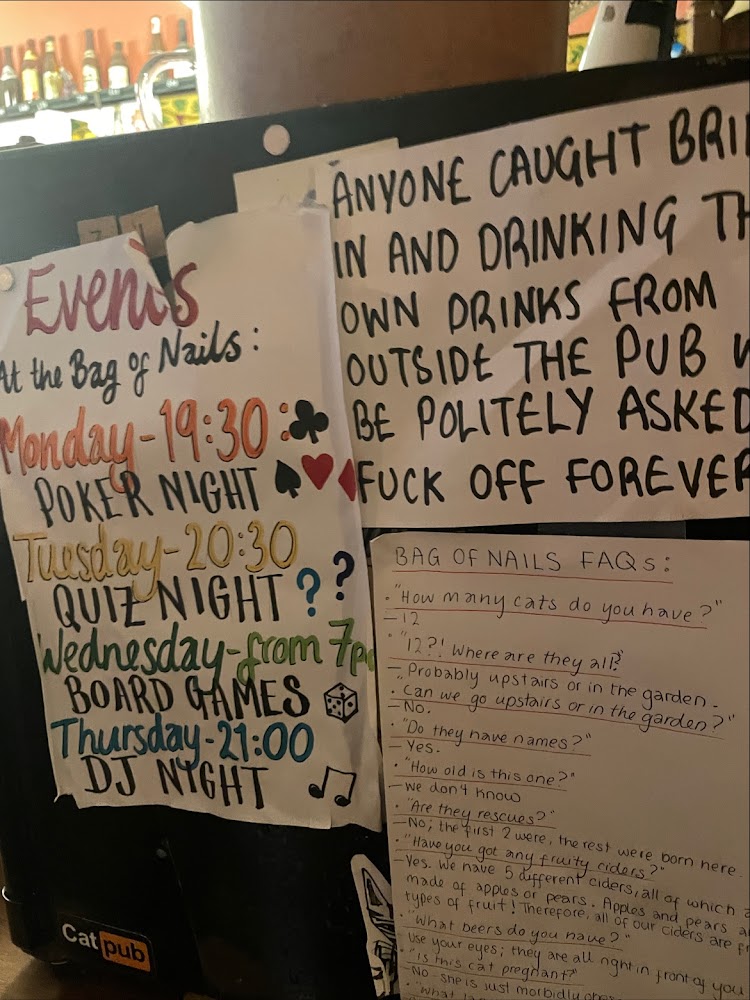 Events
At the Bag of Nails:
Monday-19:30:
POKER NIGHT
Tuesday-20:30
QUIZ NIGHT ??
Wednesday-from 7p
BOARD GAMES
Thursday-21:00
DJ NIGHT
Cat pub
ANYONE CAUGHT BRI
IN AND DRINKING TH
OWN DRINKS FROM
OUTSIDE THE PUB
BE POLITELY ASKED
FUCK OFF FOREVER
BAG OF NAILS FAQs:
• "How many cats do you have?"
- 12
• "12?! Where are they all?"
- Probably upstairs or in the garden.
• "Can we go upstairs or in the garden?"
- No.
• "Do they have names?"
- Yes.
• "How old is this one?"
- We don't know
• "Are they rescues?"
- No; the first 2 were, the rest were born here.
• "Have you got any fruity ciders?"
- Yes. We have 5 different ciders, all of which a
made of apples or pears. Apples and pears a
types of fruit! Therefore, all of our ciders are fr
• "What beers do you have?"
Use your eyes; they are all right in front of you
• "Is this cat pregnant?"
No she is just morbidly
• "What